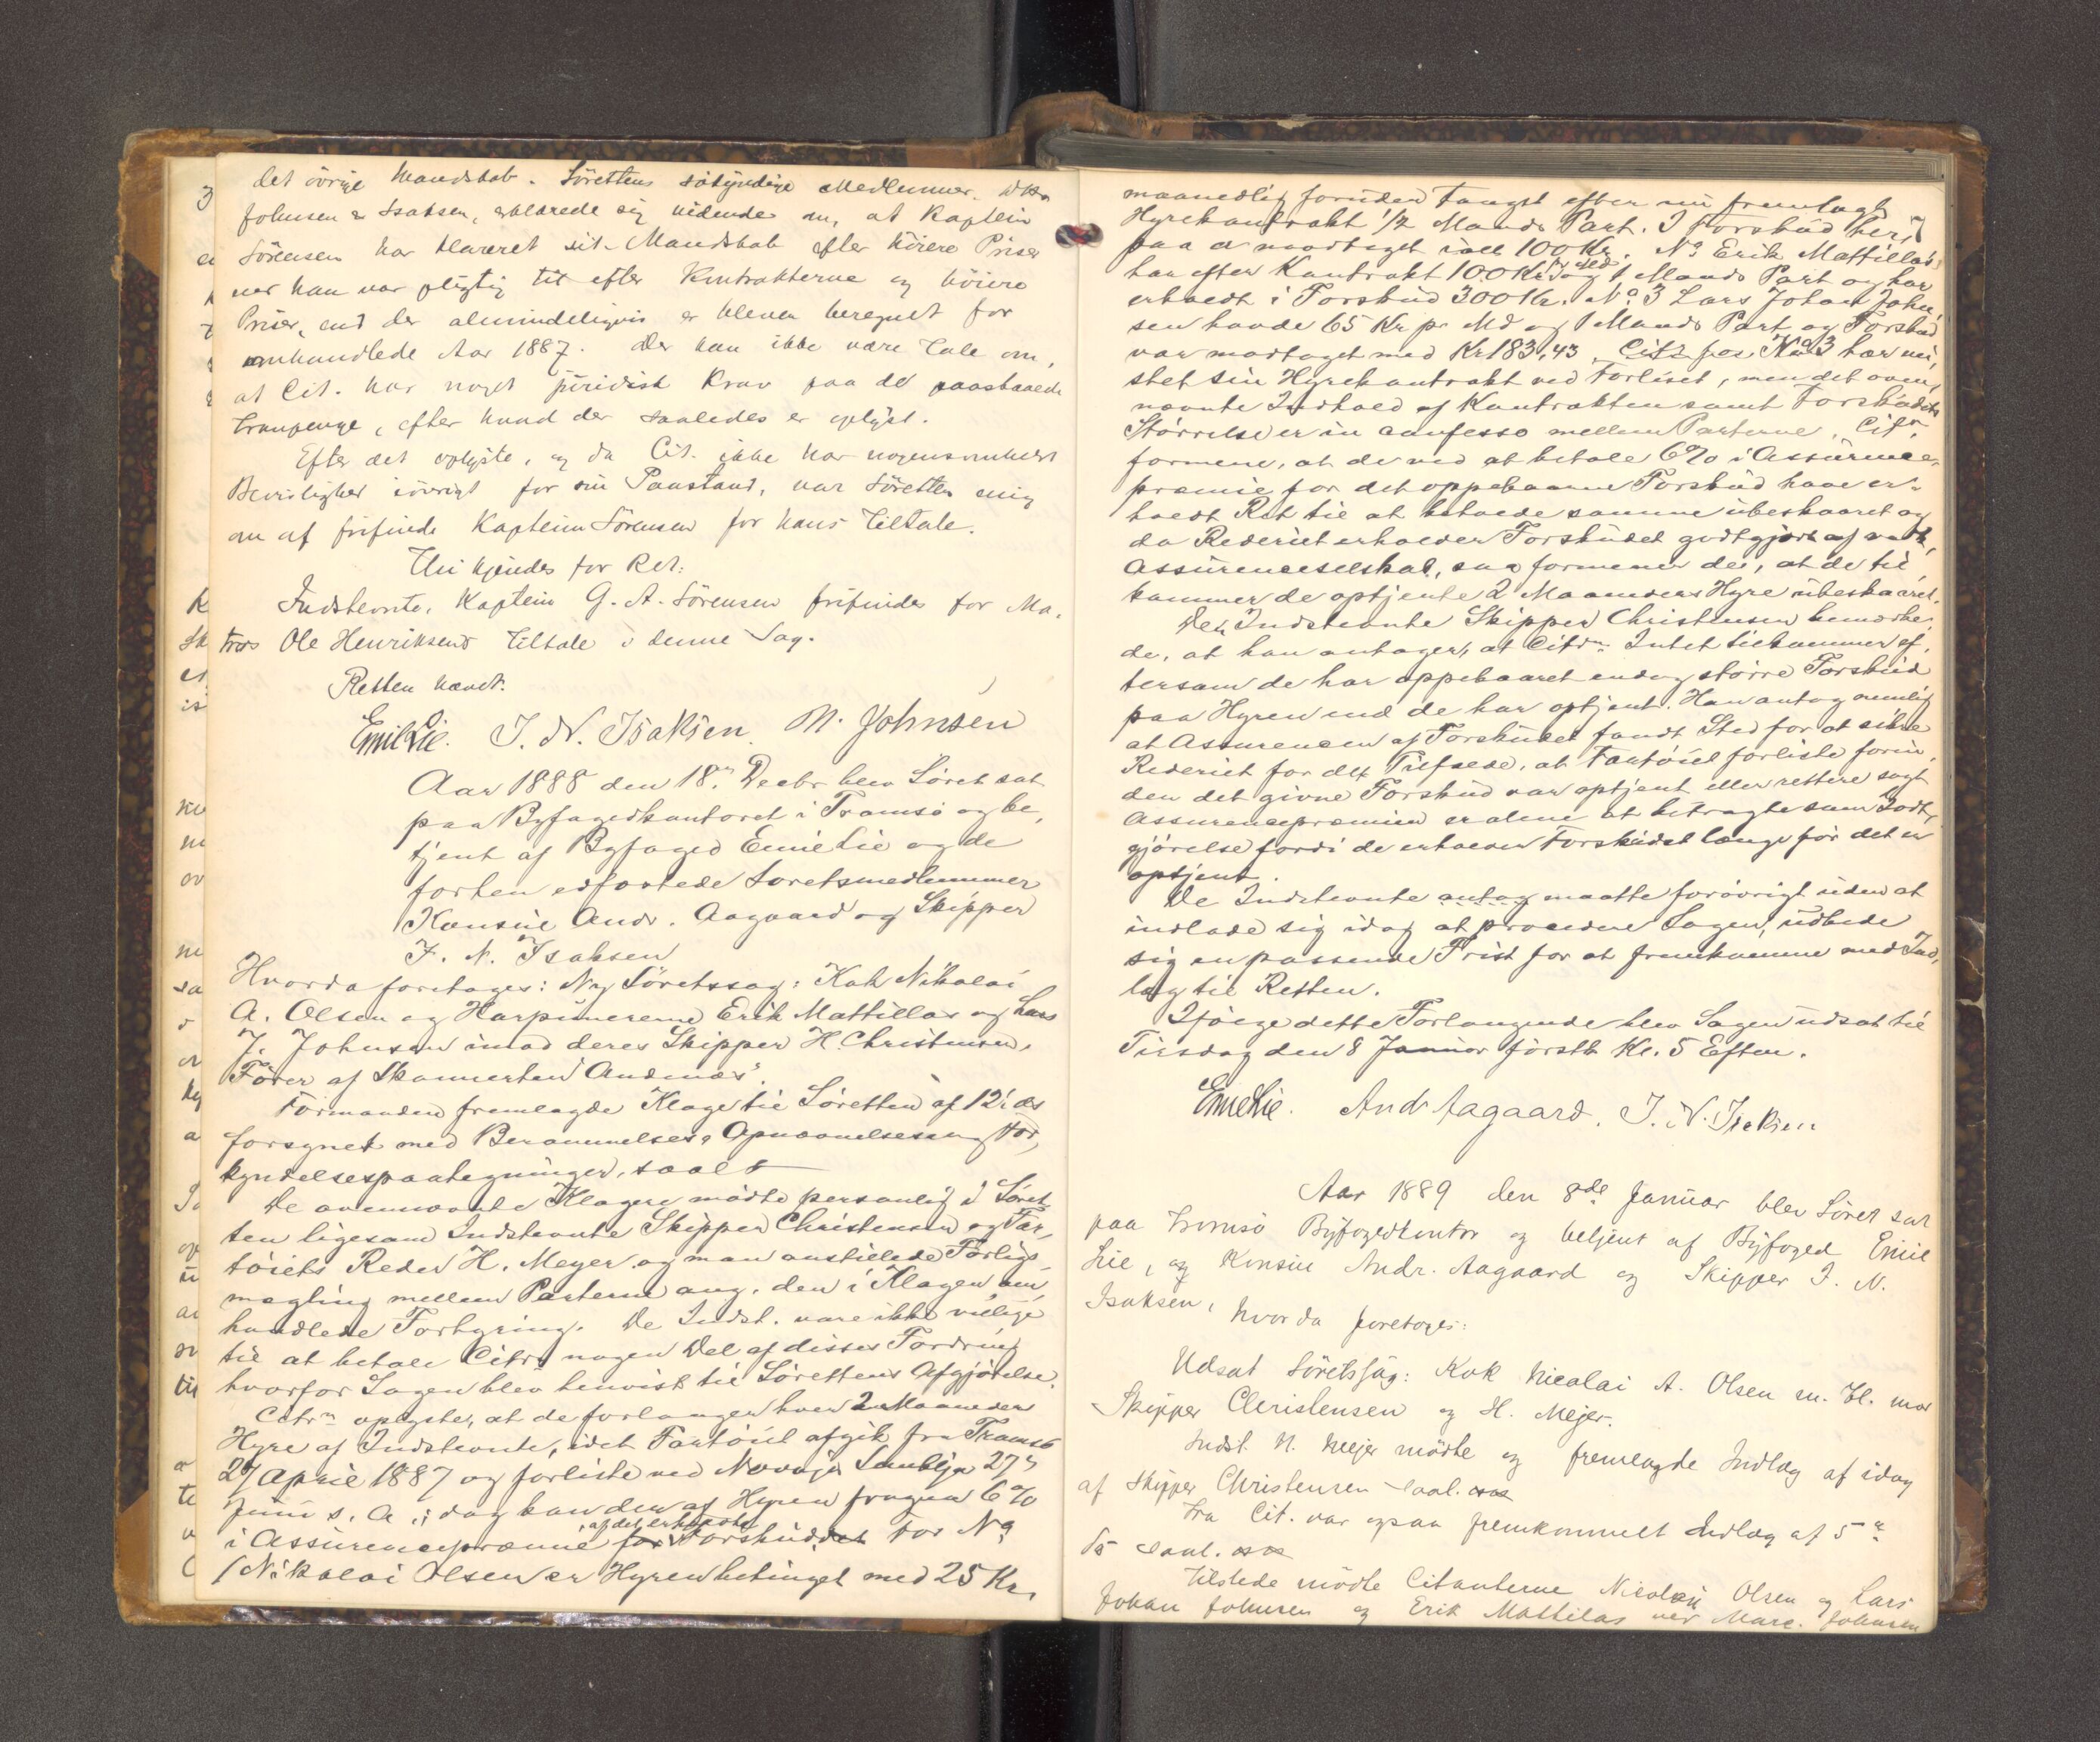 det övrige Mandskab. Sörettens sökyndige Medlemmer, dHr
Johnsen & Isaksen, erklærede sig vidende om, at Kaptein
Sörensen har klareret sit Mandskab efter höiere Priser
ner han var pligtig til efter Kontrakterne og höiere
Priser, end der almindeligvis er bleven beregnet for
omhandlede Aar 1887. Der kan ikke være Tale om,
at Cit. har noget juridisk Krav paa de paastaaede
Tranpenge, efter hvad der saaledes er oplyst.
Efter det oplyste, og da Cit. ikke har nogensomhelst
Beviligher iövrigt for sin Paastand, var Söretten enig
om at frifinde Kaptein Sörensen for hans Tiltale.
Thi kjendes for Ret:
Indstevnte, Kaptein G. A. Sörensen frifindes for Ma-
tros Ole Henriksens Tiltale i denne Sag.
Retten hævet.
Emil Lie. J. N. Isaksen M. Johnsen
Aar 1888 den 18de Decbr blev Söret sat
paa Byfogedkontoret i Tromsö og be-
tjent af Byfoged Emil Lie og de
forhen edfæstede Söretsmedlemmer
Konsul Andr. Aagaard og Skipper
J. N. Isaksen
Hvorda foretoges: Ny Söretssag: Kok Nikolai
A. Olsen og Harpunererne Erik Mattillas og Lars
J. Johnsen imod deres Skipper H. Christensen,
Förer af Skonnerten "Andenæs".
Formanden fremlagde Klage til Söretten af 12 ds
forsynet med Berammelses, Apnoonelses og For,
kyndelsespaategninger, saal
De ovennævnte Klagere mödte personlig i Söret
ten ligesom Indstevnte Skipper Christensen og Far,
töiets Reder H. Meyer og man anstillede Forligs
mægling mellem Parterne ang. den i Klagen om,
handlede Forhyring. De Indst. vare ikke villige
til at betale Citr. nogen Del af disses Fordring
hvorfor Sagen blev henvist til Sörettens Afgjörelse.
Citrn oplyste, at de forlanger hver 2 Maaneders
Hyre af Indstevnte, idet Fartöiet afgik fra Tromsö
27 April 1887 og forliste ved Novaja Semblja 27
Juni s. A., idag kan der af Hyren fragaa 6%
i Assurancepræmie af det erholdte Forskud. For No
1 Nikolai Olsen er Hyren betinget med 25 Kr,
maanedlig foruden Fangst efter nu fremlagt
Hyrekontrakt 1/2 Mands Part. I Forskud her,
paa er modtaget ialt 100 Kr. No Erik Mattillas
har efter Kontrakt 100 Kr pr Md og 1 Mands Part og har
erholdt i Forskud 300 Kr. No 3 Lars Johan John,
sen havde 65 Kr pr Md og 1 Mands Part og Forskud
var modtaget med Kr 183,43. Citr No 3 har mi,
stet sin Hyrekontrakt ved Forliset, men det oven,
nævnte Indhold af Kontrakten samt Forskudets
Störrelse er in confesso mellem Parterne. Citrn
formene, at de ved at betale 6% i Assurance,
præmie for det oppebaarne Forskud have er,
holdt Ret til at beholde samme ubeskaaret og
da Rederiet erholder Forskudet godtgjort af
Assuranceselskab, saa formener de, at de til
kommer de optjente 2 Maaneders Hyre ubeskaaret.
Den Indstevnte Skipper Christensen bemærke,
de, at han antager, at Citrn Intet tilkommer ef,
tersom de har oppebaaret endog större Forskud
paa Hyren end de har optjent. Han antog nemlig
at Assurancen af Forskudet fandt Sted for at sikre
Rederiet for det Tilfælde, at Fartöiet forliste forin,
den det givne Forskud var optjent eller rettere sagt
Assurancepræmien er alene at betragte som Godt,
gjörelse fordi de erholder Forskudet længe för det er
optjent.
De Indstevnte antog maatte forövrigt uden at
indlade sig idag at procedere Sagen, udbede
sig en passende Frist for at fremkomme med Ind,
læg til Retten.
Ifölge dette Forlangende blev Sagen udsat til
Tirsdag den 8 Januar förstk Kl. 5 Efterm.
Emil Lie. Andr Aagaard. J. N. Isaksen
Aar 1889 den 8de Januar blev Söret sat
paa Tromsö Byfogedkontor og betjent af Byfoged Emil
Lie, og Konsul Andr. Aagaard og Skipper J. N.
Isaksen,
hvorda foretoges:
Udsat Söretssag: Kok Nicolai A. Olsen m. fl. mod
Skipper Christensen og H. Mejer.
Indst. H. Mejer mödte og fremlagde Indlæg af idag
af Skipper Christensen saal.
Fra Cit. var ogsaa fremkommet Indlæg af 5
saal.
Tilstede mödte Citanterne Nicolai Olsen og Lars
Johan Johnsen og Erik Mattilas ved Marc. Johnsen